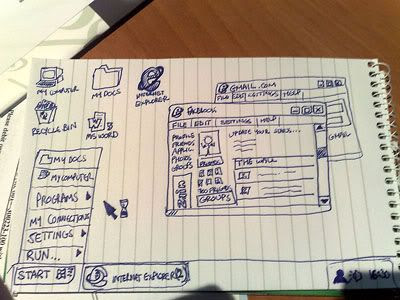 MY COMPUTER
MY DOCS
INTERNET
EXPLORER
RECYCLE BIN
MS WORD
GMAIL.COM
FILE EDIT SETTINGS HELP
GMAIL
FACEBOOK
FILE EDIT SETTINGS HELP
PROFILE
FRIENDS
PHOTOS
GROUPS
UPDATE YOUR STATUS...
THE WALL
GROUPS
MY DOCS
MY COMPUTER
PROGRAMS
MY CONNECTIONS
SETTINGS
RUN...
START
INTERNET EXPLORER (2)